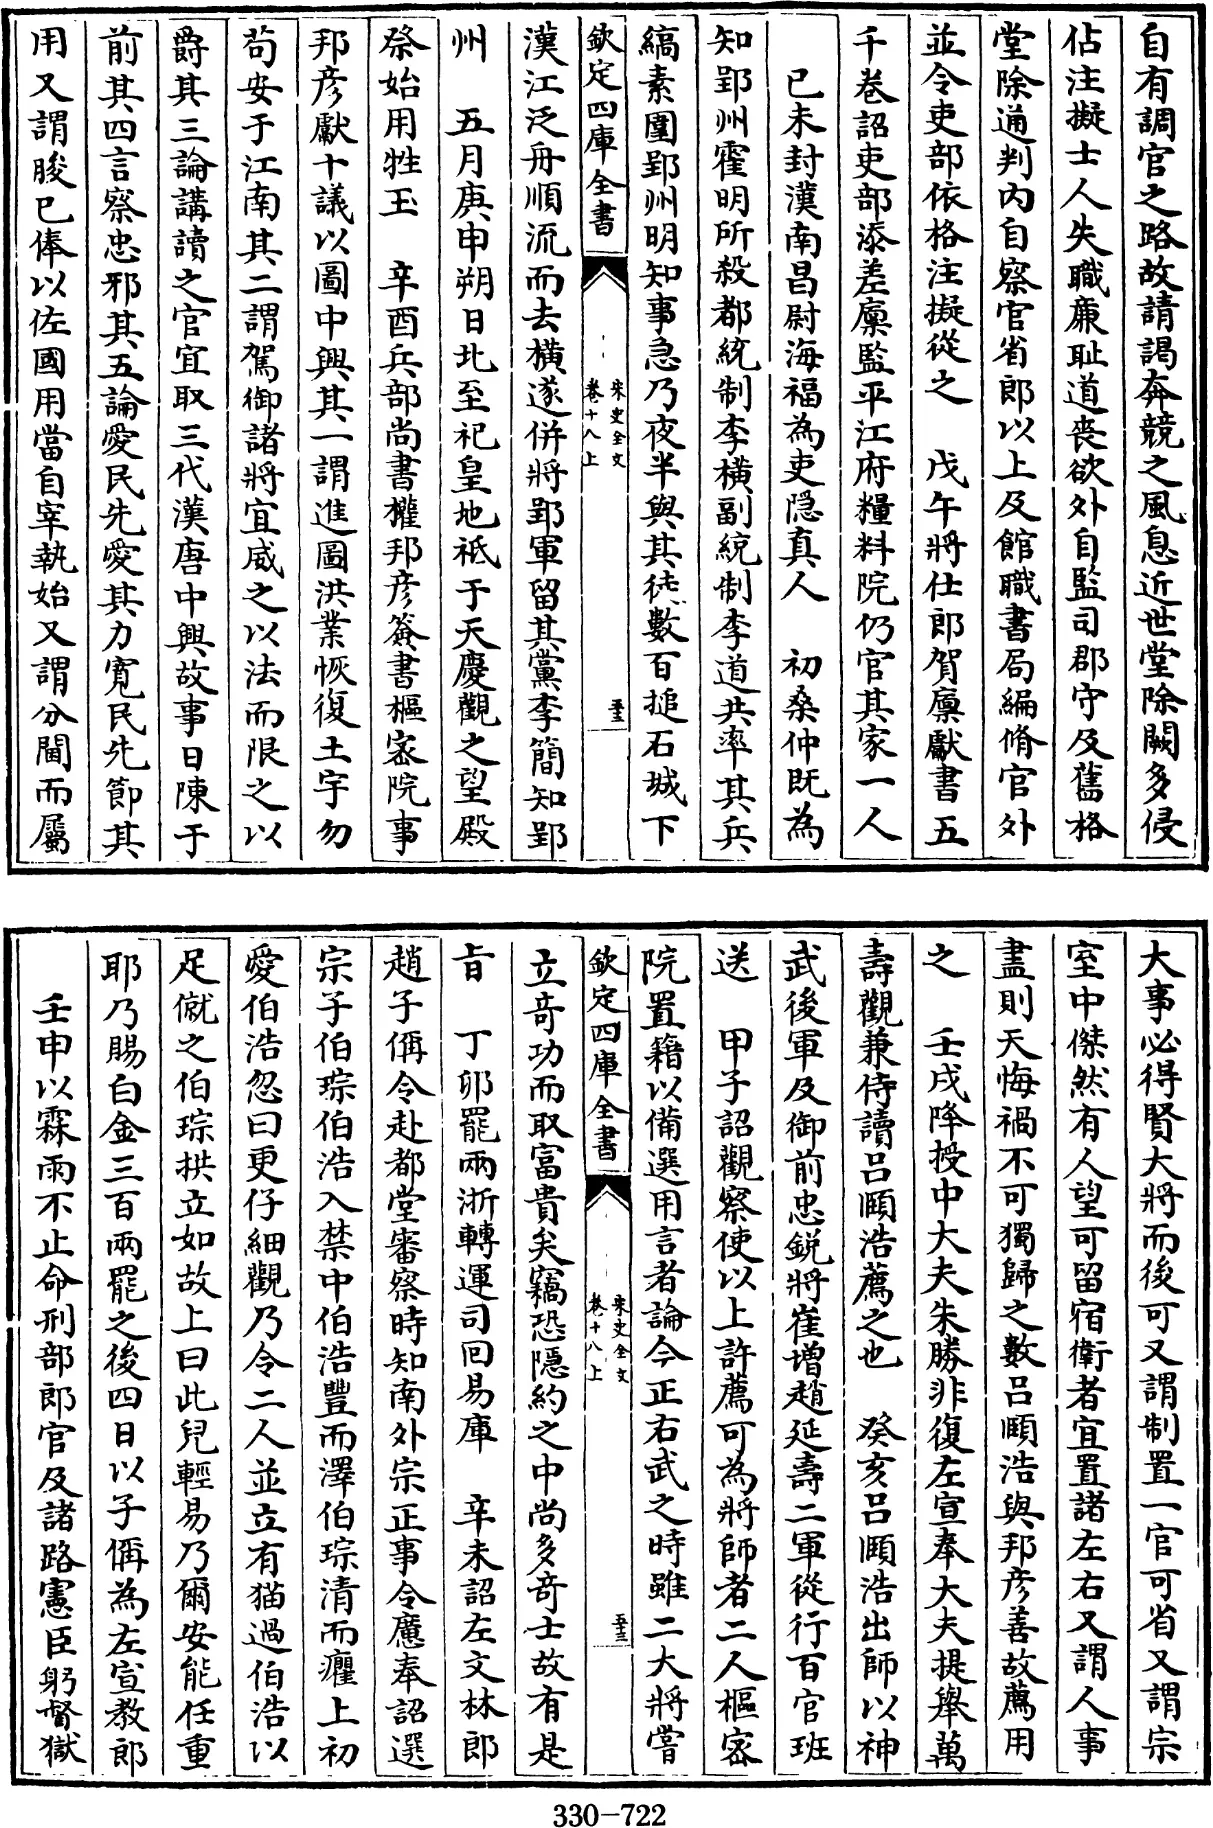 自有調官之路故請謁奔競之風息近世堂除闕多侵
佔注擬士人失職廉耻道喪欲外自監司郡守及舊格
堂除通判内自察官省郎以上及館職書局編脩官外
並令吏部依格注擬從之　戊午將仕郎賀廩獻書五
千卷詔吏部添差廩監平江府糧料院仍官其家一人
已未封漢南昌尉海福為吏隐真人　初桑仲既為
知郢州霍明所殺都統制李横副統制李道共率其兵
縞素圍郢州明知事急乃夜半與其徒數百搥石城下
欽定四庫全書
宋史全文
卷十八上
五十三
漢江泛舟順流而去横遂併將郢軍留其黨李簡知郢
州　五月庚申朔日北至祀皇地祗于天慶觀之望殿
祭始用牲玉　辛酉兵部尚書權邦彦簽書樞宻院事
邦彦獻十議以圖中興其一謂進圖洪業恢復土宇勿
苟安于江南其二謂駕御諸將宜威之以法而限之以
爵其三論講讀之官宜取三代漢唐中興故事日陳于
前其四言察忠邪其五論愛民先愛其力寛民先節其
用又謂朘已俸以佐國用當自宰執始又謂分閫而屬
大事必得賢大將而後可又謂制置一官可省又謂宗
室中傑然有人望可留宿衛者宜置諸左右又謂人事
盡則天悔禍不可獨歸之數吕頤浩與邦彦善故薦用
之　壬戌降授中大夫朱勝非復左宣奉大夫提舉萬
壽觀兼侍讀吕頤浩薦之也　癸亥吕頤浩出師以神
武後軍及御前忠鋭將崔增趙延壽二軍從行百官班
送　甲子詔觀察使以上許薦可為將帥者二人樞宻
院置籍以備選用言者論今正右武之時雖二大將嘗
欽定四庫全書
宋史全文
卷十八上
五十三
立竒功而取富貴矣竊恐隱約之中尚多竒士故有是
旨　丁卯罷兩浙轉運司回易庫　辛未詔左文林郎
趙子偁令赴都堂審察時知南外宗正事令廌奉詔選
宗子伯琮伯浩入禁中伯浩豐而澤伯琮清而癯上初
愛伯浩忽曰更仔細觀乃令二人並立有猫過伯浩以
足僦之伯琮拱立如故上曰此兒輕易乃爾安能任重
耶乃賜白金三百兩罷之後四日以子偁為左宣教郎
壬申以霖雨不止命刑部郎官及諸路憲臣躬督獄
330-722